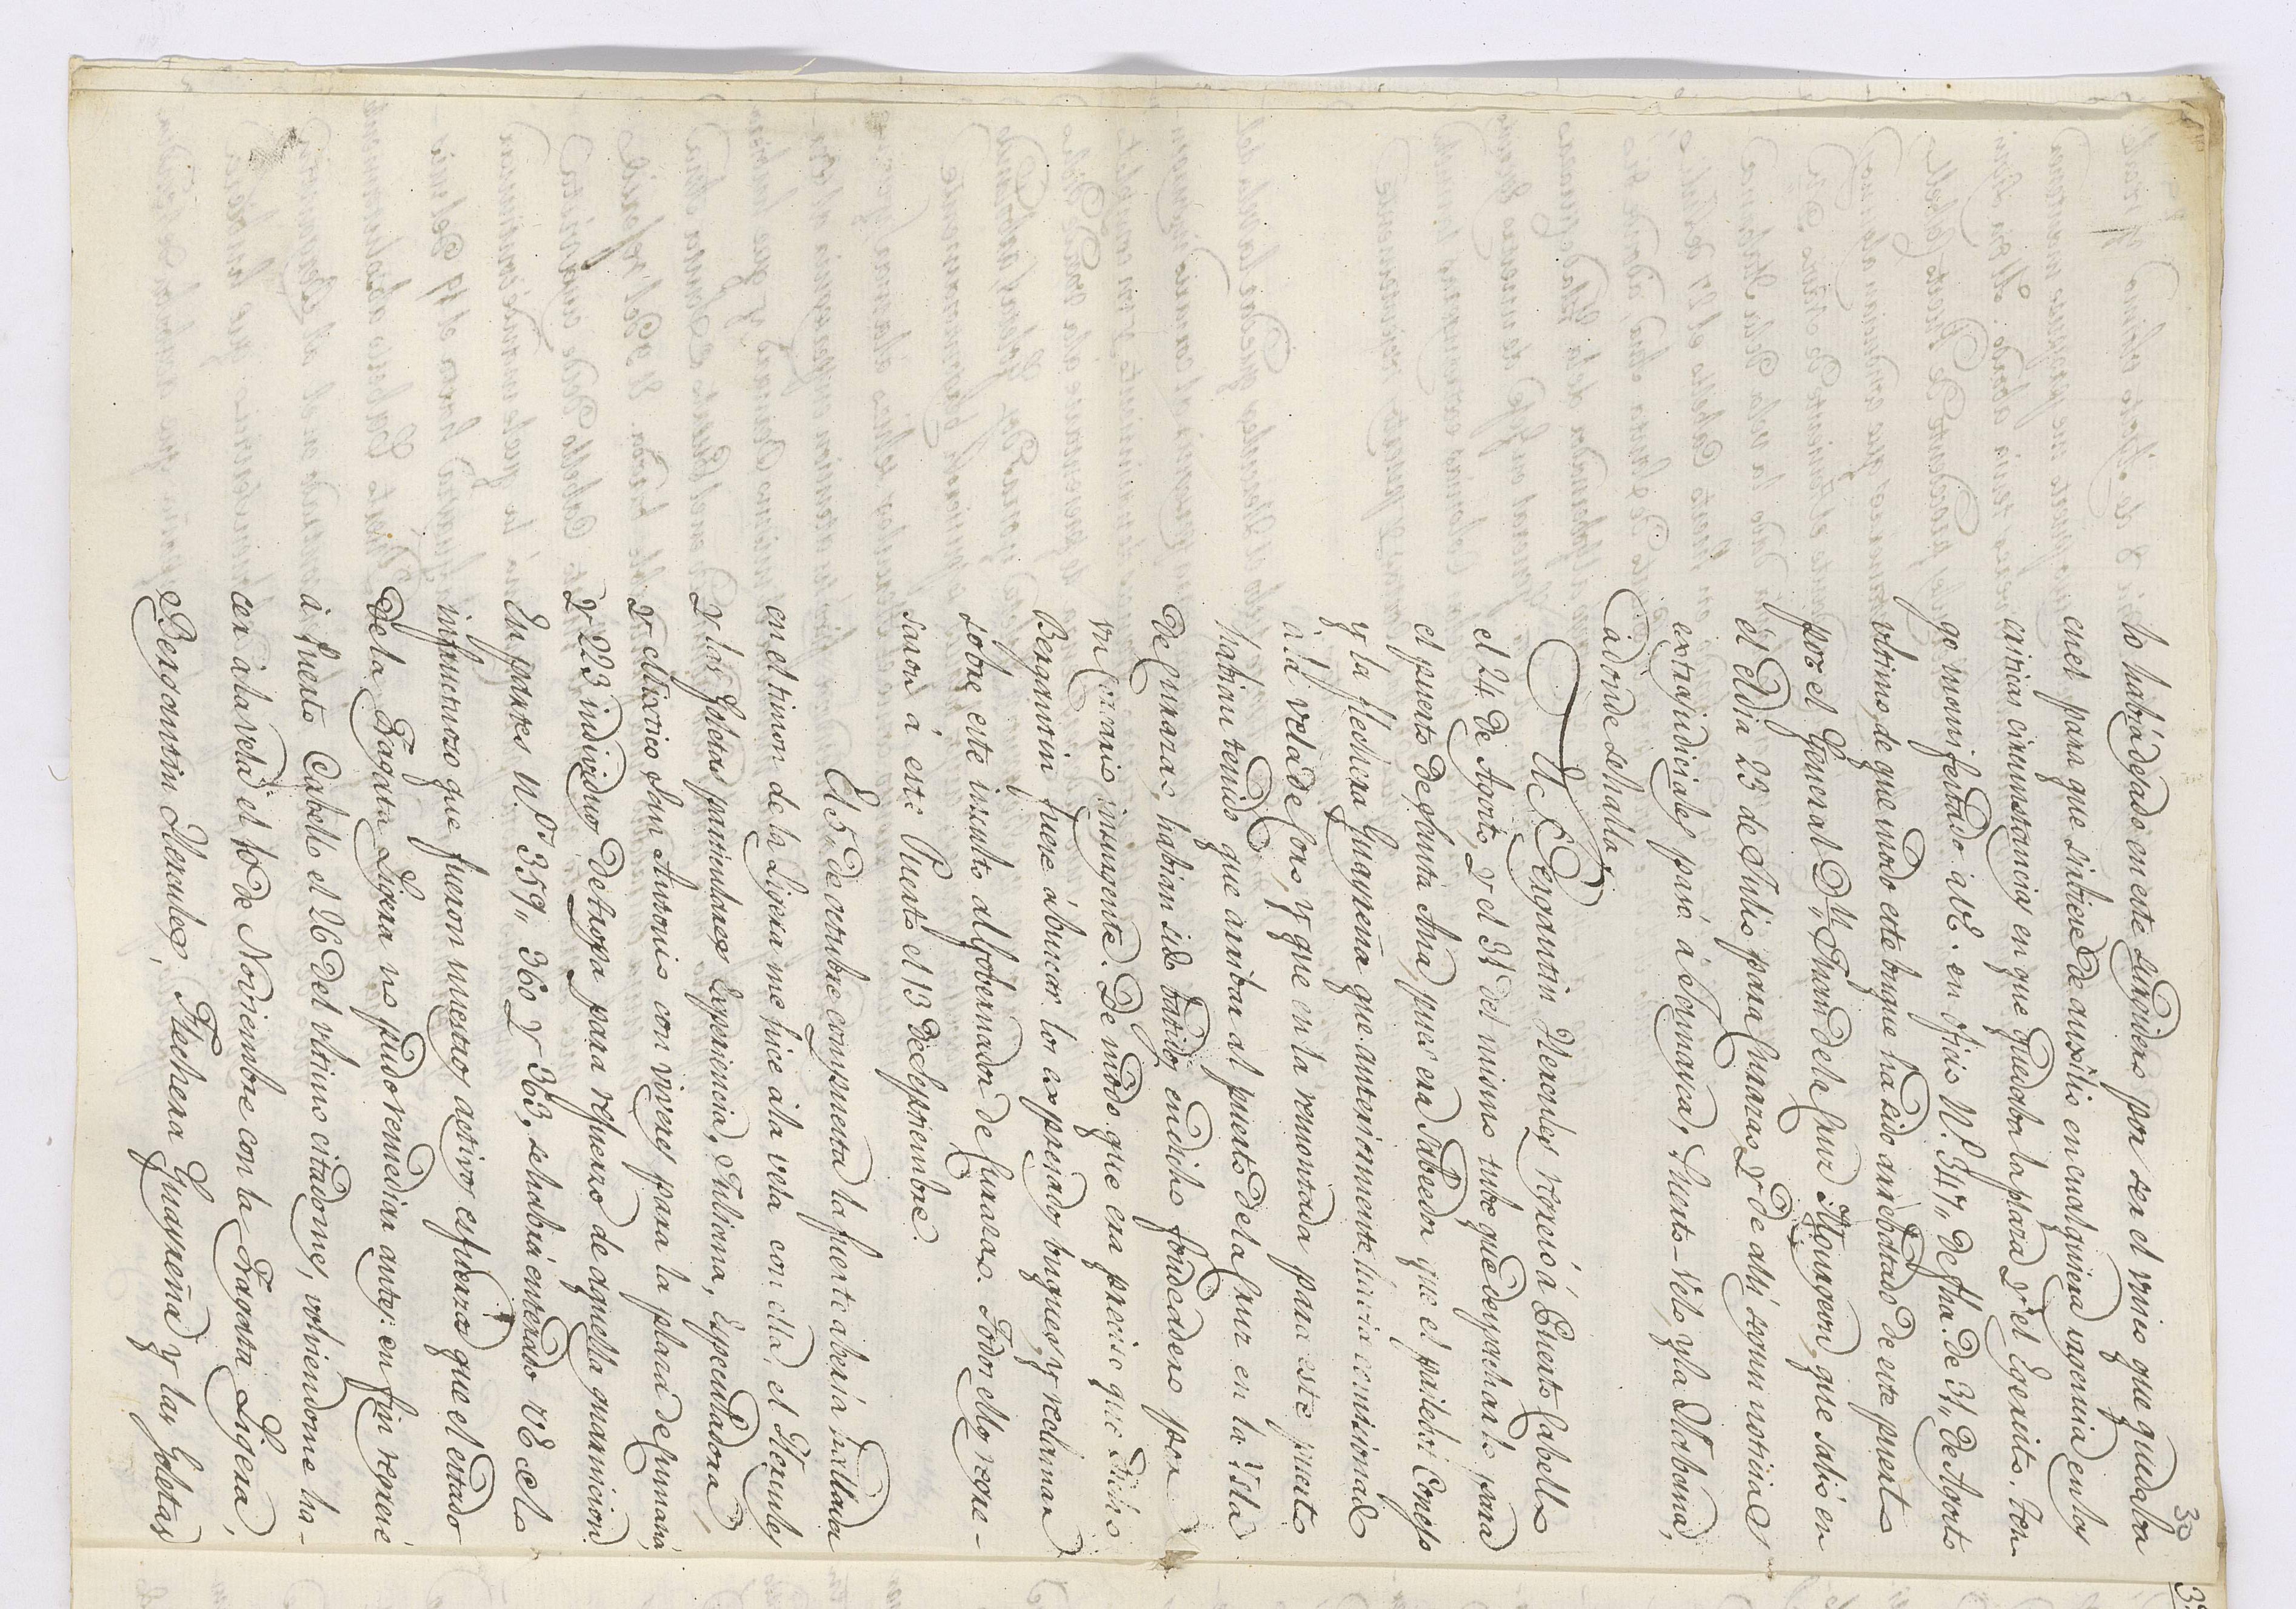 30
lo habia dejado en este surgidero por ser el unico que quedaba
en el para que sirbiese de auxilio en cualquiera urgencia en las
criticas circunstancias en que quedaba la plaza y el Egercito. Ten-
go manifestado a VE. en oficio N.º 347,, de fha. de 31,, de Agosto
ultimo, de que modo este buque ha sido arrebatado de este puerto
por el General D.n Fran.co de la Cruz Mourgeon, que salió en
el dia 23 de Julio para Curazao, y de alli segun noticias
extrajudiciales pasó á Samaya, Puerto-Velo, y la Habana,
adonde se halla.
El Bergantin Hercules regresó á Puerto Cabello
el 24 de Agosto, y el 31 del mismo tube que despacharlo para
el puerto de Santa Ana, pues era sabedor que el pailebot Conejo
y la flechera Guayreña que anteriormente hacia comisionado
á la vela de Coro, y que en la remontada para este puerto
habian tenido que arribar al puerto de la Cruz en la isla
de Curazao, habian sido batidos en dicho fondeadero por
un corsario insurgente. De modo que era preciso que dicho
Bergantin fuere á buscar los expresados buques, y reclamar
sobre este insulto al Gobernador de Curazao. Todos ellos regre-
saron á este Puerto el 13 de Septiembre.
El 5, de octubre compuesta la fuerte aberia hallada
en el timon de la Ligera me hice á la vela con ella, el Hercules
y las Goletas particulares Experiencia, Juliana, Especuladora,
y el Mixtico San Antonio con viveres para la plaza de Cumaná,
y 223 individuos de tropa para refuerzo de aquella guarnicion.
En partes N.os 359,, 360 y 363, se habrá enterado VE de lo
infructuoso que fueron nuestros activos esfuerzos que el estado
de la Fragata Ligera no pudo remediar antes: en fin regresé
á Puerto Cabello el 26 del ultimo citado mes, volviendome ha-
cer á la vela el 10 de Noviembre con la Fragata Ligera,
Bergantin Hercules, Flechera Guayreña y las Goletas